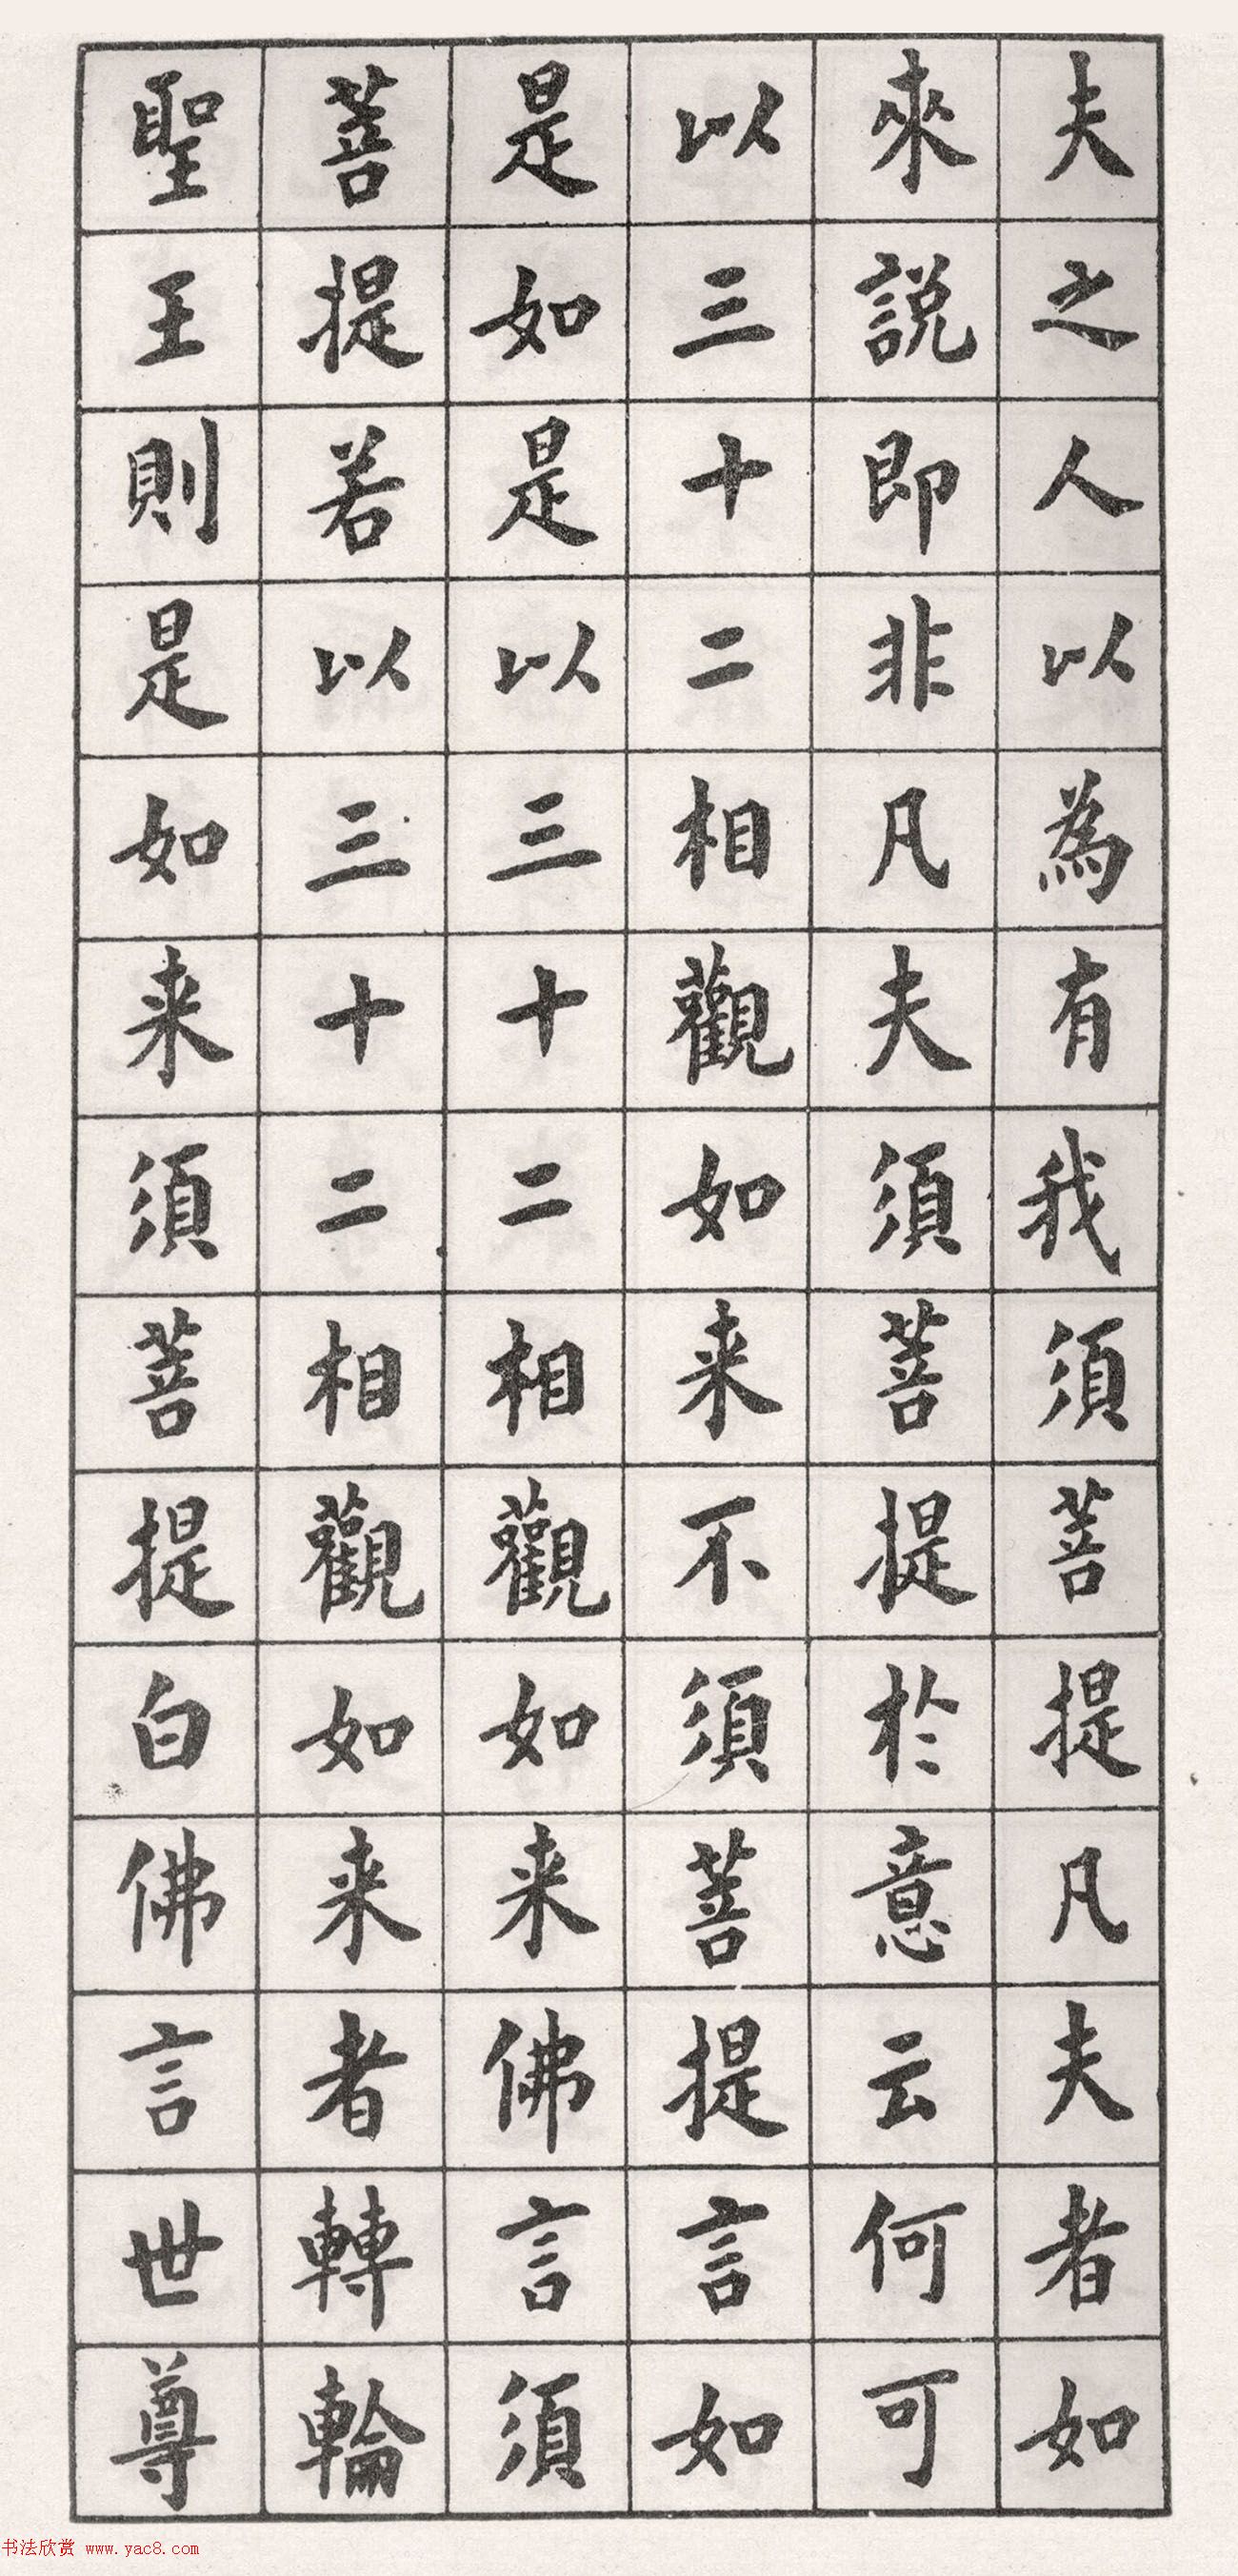 夫之人以為有我須菩提凡夫者如
來説即非凡夫須菩提於意云何可
以三十二相觀如来不須菩提言如
是如是以三十二相觀如来佛言須
菩提若以三十二相觀如来者轉輪
聖王則是如来須菩提白佛言世尊
书法欣赏 www.yac8.com